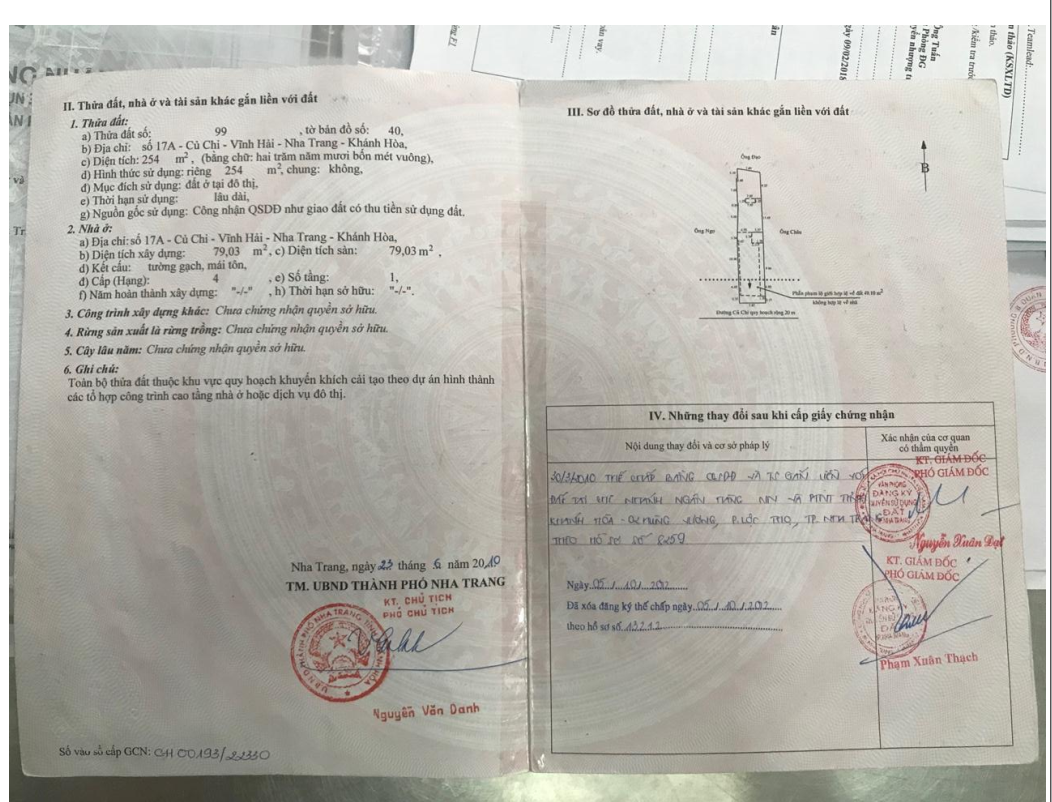 II. Thửa đất, nhà ở và tài sản khác gắn liền với đất
1. Thửa đất:
a) Thửa đất số: 99 , tờ bản đồ số: 40,
b) Địa chỉ: số 17A - Củ Chi - Vĩnh Hải - Nha Trang - Khánh Hòa,
c) Diện tích: 254 m², (bằng chữ: hai trăm năm mươi bốn mét vuông),
d) Hình thức sử dụng: riêng 254 m², chung: không,
đ) Mục đích sử dụng: đất ở tại đô thị,
e) Thời hạn sử dụng: lâu dài,
g) Nguồn gốc sử dụng: Công nhận QSDĐ như giao đất có thu tiền sử dụng đất.
2. Nhà ở:
a) Địa chỉ: số 17A - Củ Chi - Vĩnh Hải - Nha Trang - Khánh Hòa,
b) Diện tích xây dựng: 79,03 m², c) Diện tích sàn: 79,03 m²,
d) Kết cấu: tường gạch, mái tôn,
đ) Cấp (Hạng): 4 , e) Số tầng: 1,
f) Năm hoàn thành xây dựng: "-/-" , h) Thời hạn sở hữu: "-/-".
3. Công trình xây dựng khác: Chưa chứng nhận quyền sở hữu.
4. Rừng sản xuất là rừng trồng: Chưa chứng nhận quyền sở hữu.
5. Cây lâu năm: Chưa chứng nhận quyền sở hữu.
6. Ghi chú:
Toàn bộ thửa đất thuộc khu vực quy hoạch khuyến khích cải tạo theo dự án hình thành
các tổ hợp công trình cao tầng nhà ở hoặc dịch vụ đô thị.
Nha Trang, ngày 23 tháng 6 năm 2010
TM. UBND THÀNH PHỐ NHA TRANG
KT. CHỦ TỊCH
PHÓ CHỦ TỊCH
Nguyễn Văn Danh
Số vào sổ cấp GCN: CH 00193/22330
III. Sơ đồ thửa đất, nhà ở và tài sản khác gắn liền với đất
B
Ông Đạo
Ông Ngự
Ông Chấn
Phần phạm lộ giới hợp lệ về đất 40.10 m²
không hợp lệ về nhà
Đường Củ Chi quy hoạch rộng 20 m
IV. Những thay đổi sau khi cấp giấy chứng nhận
Nội dung thay đổi và cơ sở pháp lý
Xác nhận của cơ quan
có thẩm quyền
THẾ CHẤP BẰNG QSDĐ VÀ TS GẮN LIỀN VỚI
ĐẤT TẠI CHI NHÁNH NGÂN HÀNG NN VÀ PTNT TỈNH
KHÁNH HÒA - HÙNG VƯƠNG, P. LỘC THỌ, TP. NHA TRANG
THEO HỒ SƠ SỐ
KT. GIÁM ĐỐC
PHÓ GIÁM ĐỐC
VĂN PHÒNG
ĐĂNG KÝ
QUYỀN SỬ DỤNG
ĐẤT
Nguyễn Xuân Đạt
Ngày 05 / 10 / 2012
Đã xóa đăng ký thế chấp ngày 05 / 10 / 2012
theo hồ sơ số 13212
KT. GIÁM ĐỐC
PHÓ GIÁM ĐỐC
Phạm Xuân Thạch
Teamlead:
thảo (KSXLTD)
Ông Tuấn
Phòng ĐG
ngày 09/02/2018